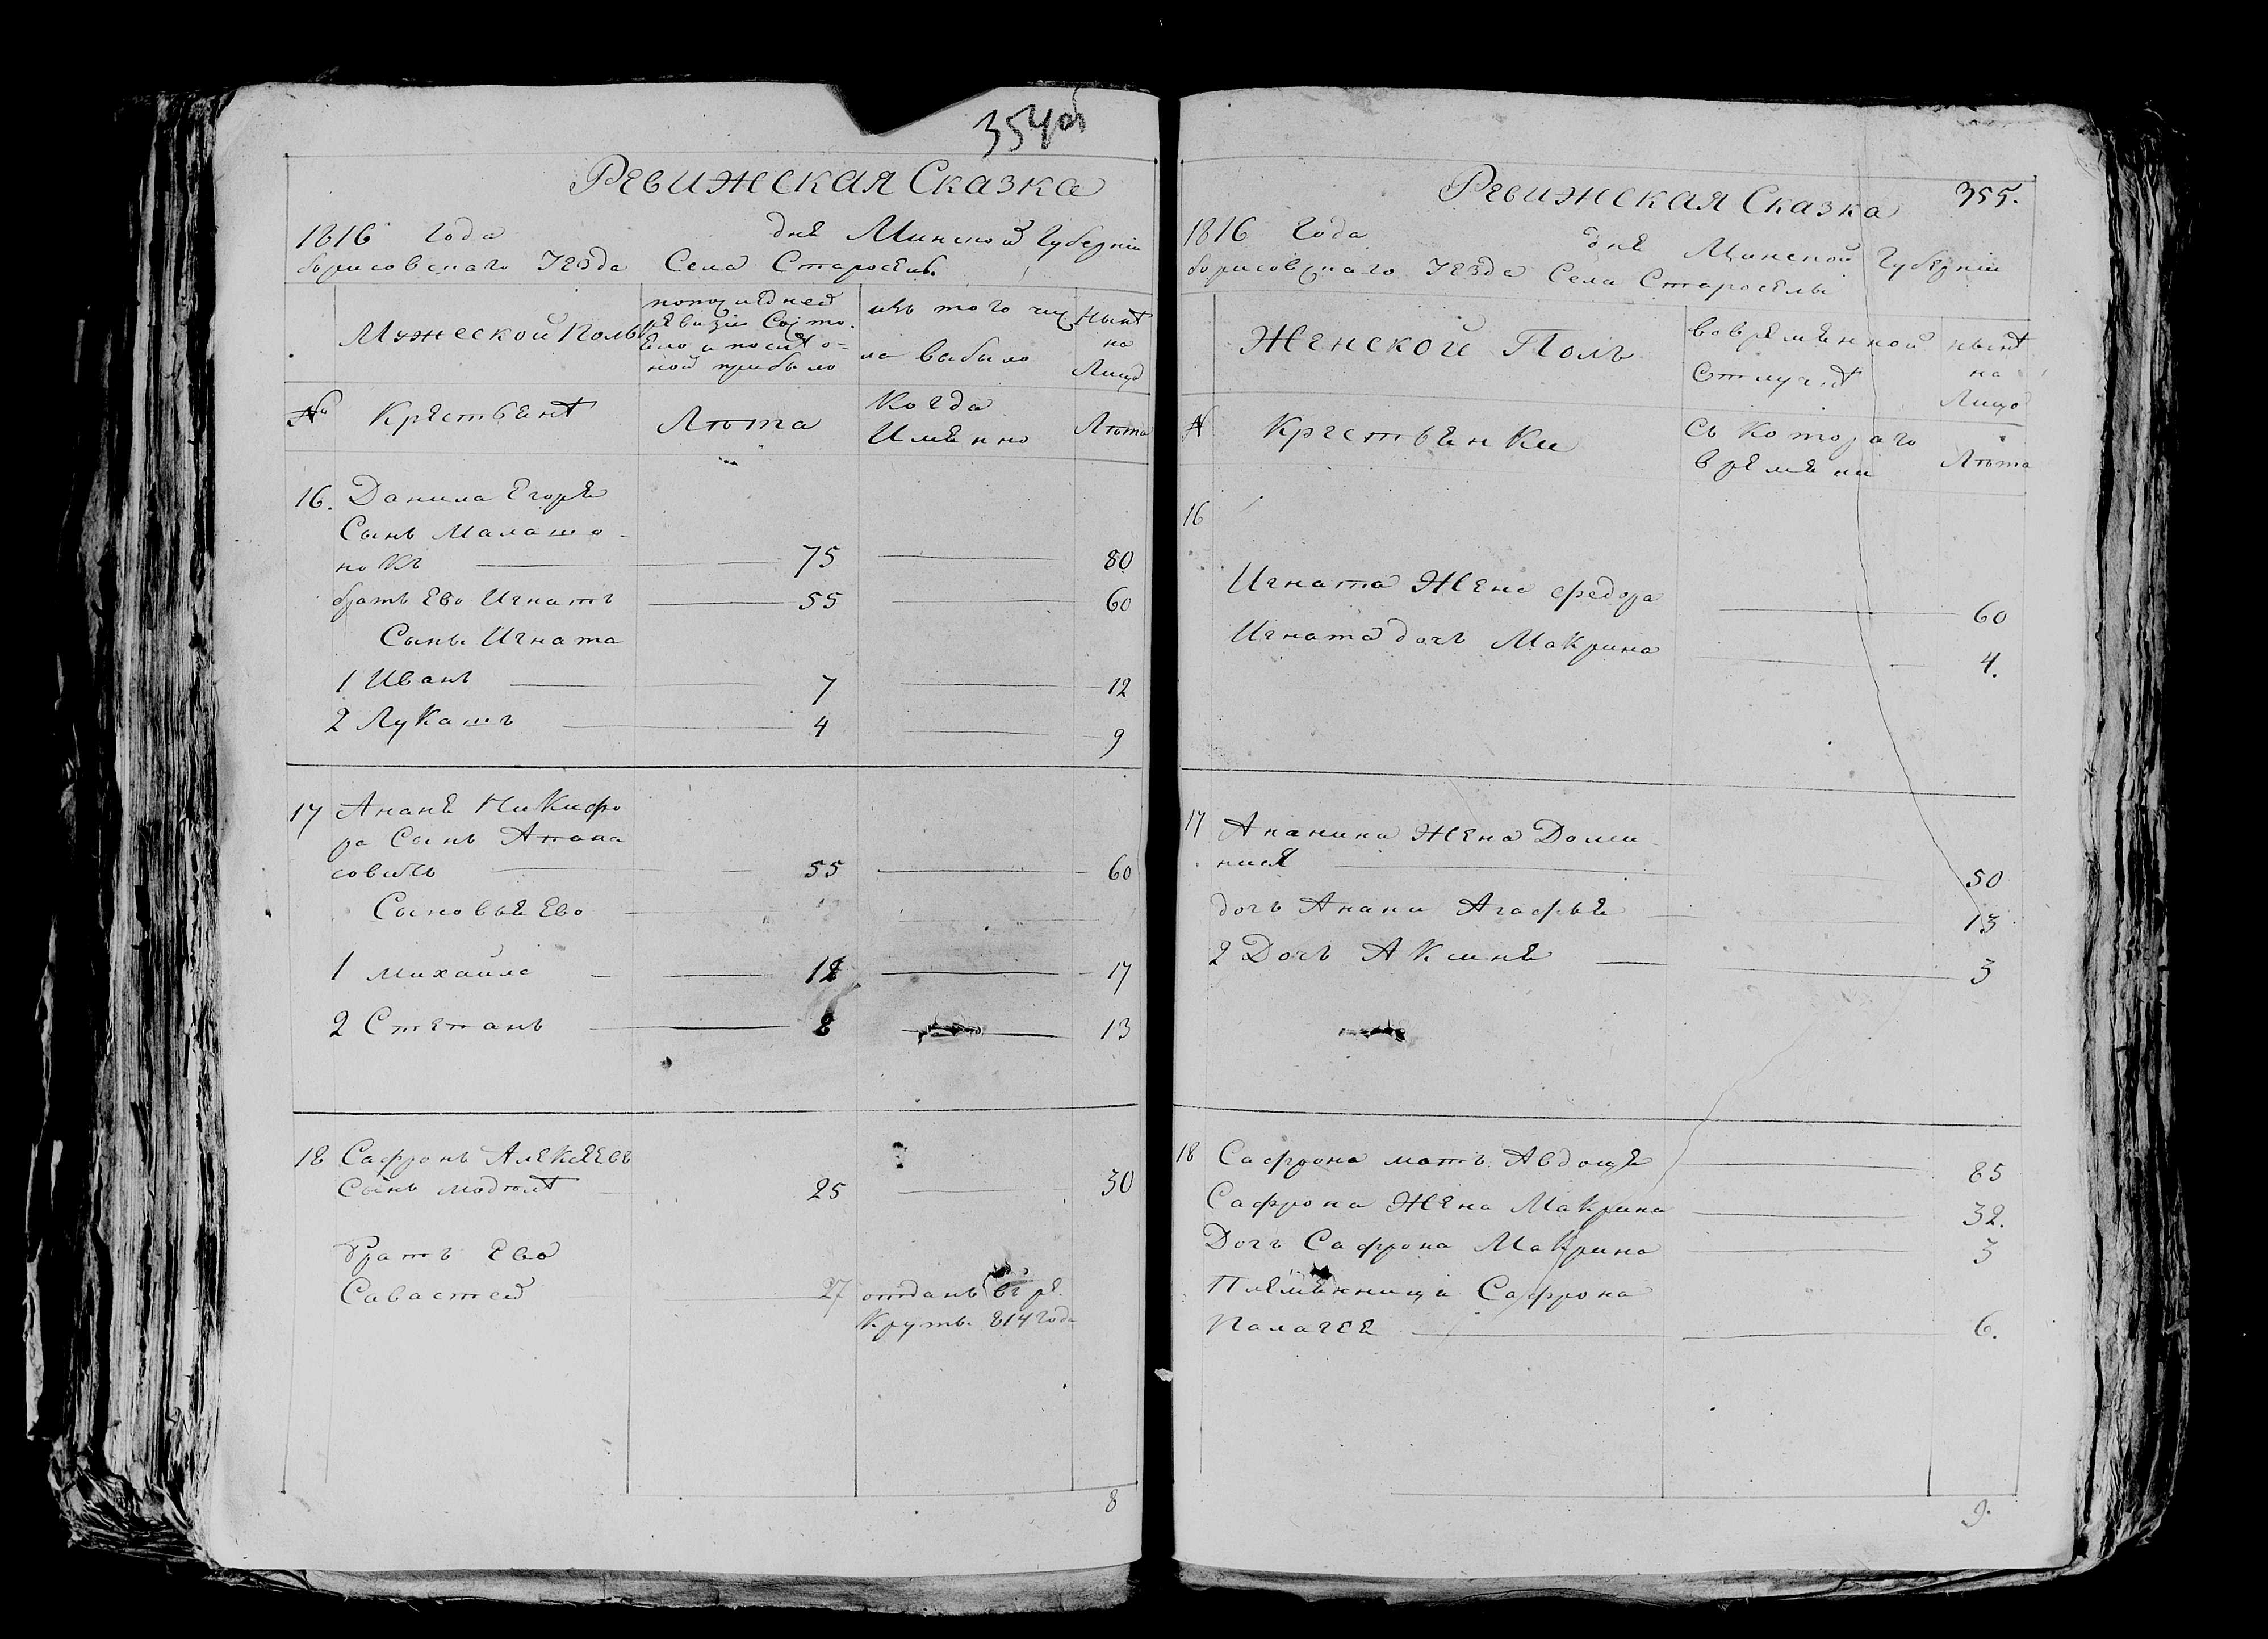 354об
Ревижская Сказка
1816 года дня Минской Губерніи
борисовскаго Уезда Села Староселья
Мужеской Полъ
попоследней ревизіи Состо-
яло и после о-
ной прибыло
изъ того чис
ла выбыло
Ныне
на
Лицо
№ Крестьяне Лета
Когда
Имянно
Лета
16. Данила Егоря
Сынъ Малашо-
нокъ 75 80
братъ Ево Игнатъ 55 60
Сынъ Игната
1 Иванъ 7 12
2 Лукашъ 4 9
17 Ананя Никифо
ра Сынъ Апана
совичъ 55 60
Сыновья Ево
1 Михайла 12 17
2 Степанъ 8 13
18 Сафронъ Алексеевъ
Сынъ 25 30
Братъ Ево
Савастей 27 отданъ въ ре
Круты 814 года
8
Ревижская Сказка 355.
1816 Года дня Минской Губерніи
борисовскаго Уезда Села Староселья
Женской Полъ
вовременной
Отлучке
ныне
на
Лицо
№ Крестьянки
Съ Котораго
времени
Лета
16
Игната Жена Федора 60
Игната дочь Макрина 4.
17 Ананина Жена Доми
ника 50
дочь Анани Агафья 13
2 Дочь Аксиня 3
18 Сафрона мать Авдоця 85
Сафрона Жена Макрина 32.
Дочь Сафрона Макрина 3
Племянница Сафрона
Палагея 6.
9.